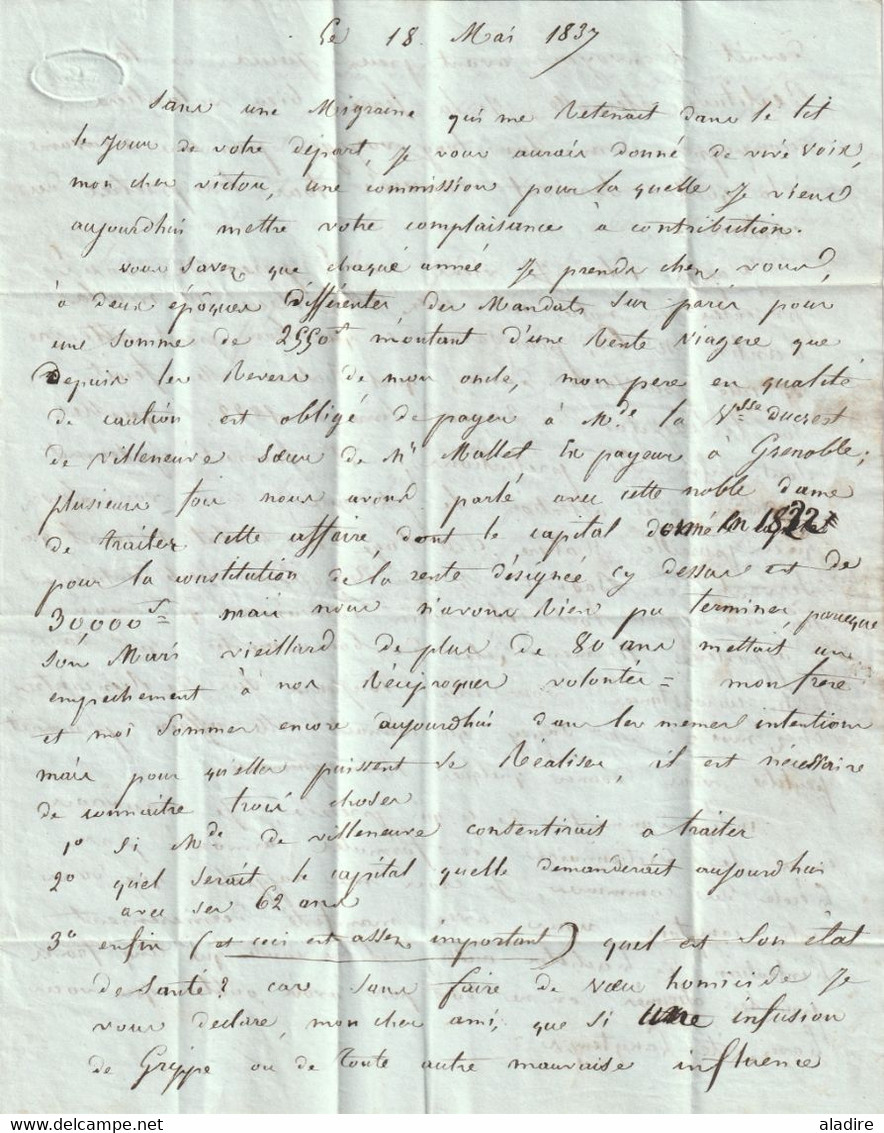 Le 18 Mai 1837
Sans une Migraine qui me Retenait dans le lit
le Jour de votre départ, Je vous aurais donné de vive Voix,
mon cher victor, une commission pour la quelle Je viens
aujourdhui mettre votre complaisance à contribution.
vous savez que chaque année Je prends chez vous,
à deux époques différentes, des Mandats sur paris pour
une somme de 2550f montant d'une Rente Viagere que
Depuis les Revers de mon oncle, mon pere en qualité
de caution est obligé de payer à Mde la Vsse Ducrest
de Villeneuve sœur de Mr Mallet Ex payeur à Grenoble;
plusieurs fois nous avons parlé avec cette noble dame
de traiter cette affaire, dont le capital donné en 1822
pour la constitution de la rente désignée cy dessus est de
30,000f= mais nous n'avons Rien pu terminer, parceque
son Mari vieillard de plus de 80 ans mettait un
empechement à nos Réciproques volontés = mon frere
et moi sommes encore aujourdhui dans les memes intentions
mais pour qu'elles puissent se Réaliser, il est nécessaire
de connaitre trois choses
1o si Mde de Villeneuve consentirait a traiter
2o quel serait le capital quelle demanderait aujourdhui
avec ses 62 ans
3o enfin (et ceci est assez important) quel est son état
de santé? car sans faire de vœu homicide Je
vous declare, mon cher ami, que si une infusion
de Grippe ou de toute autre mauvaise influence
aladire